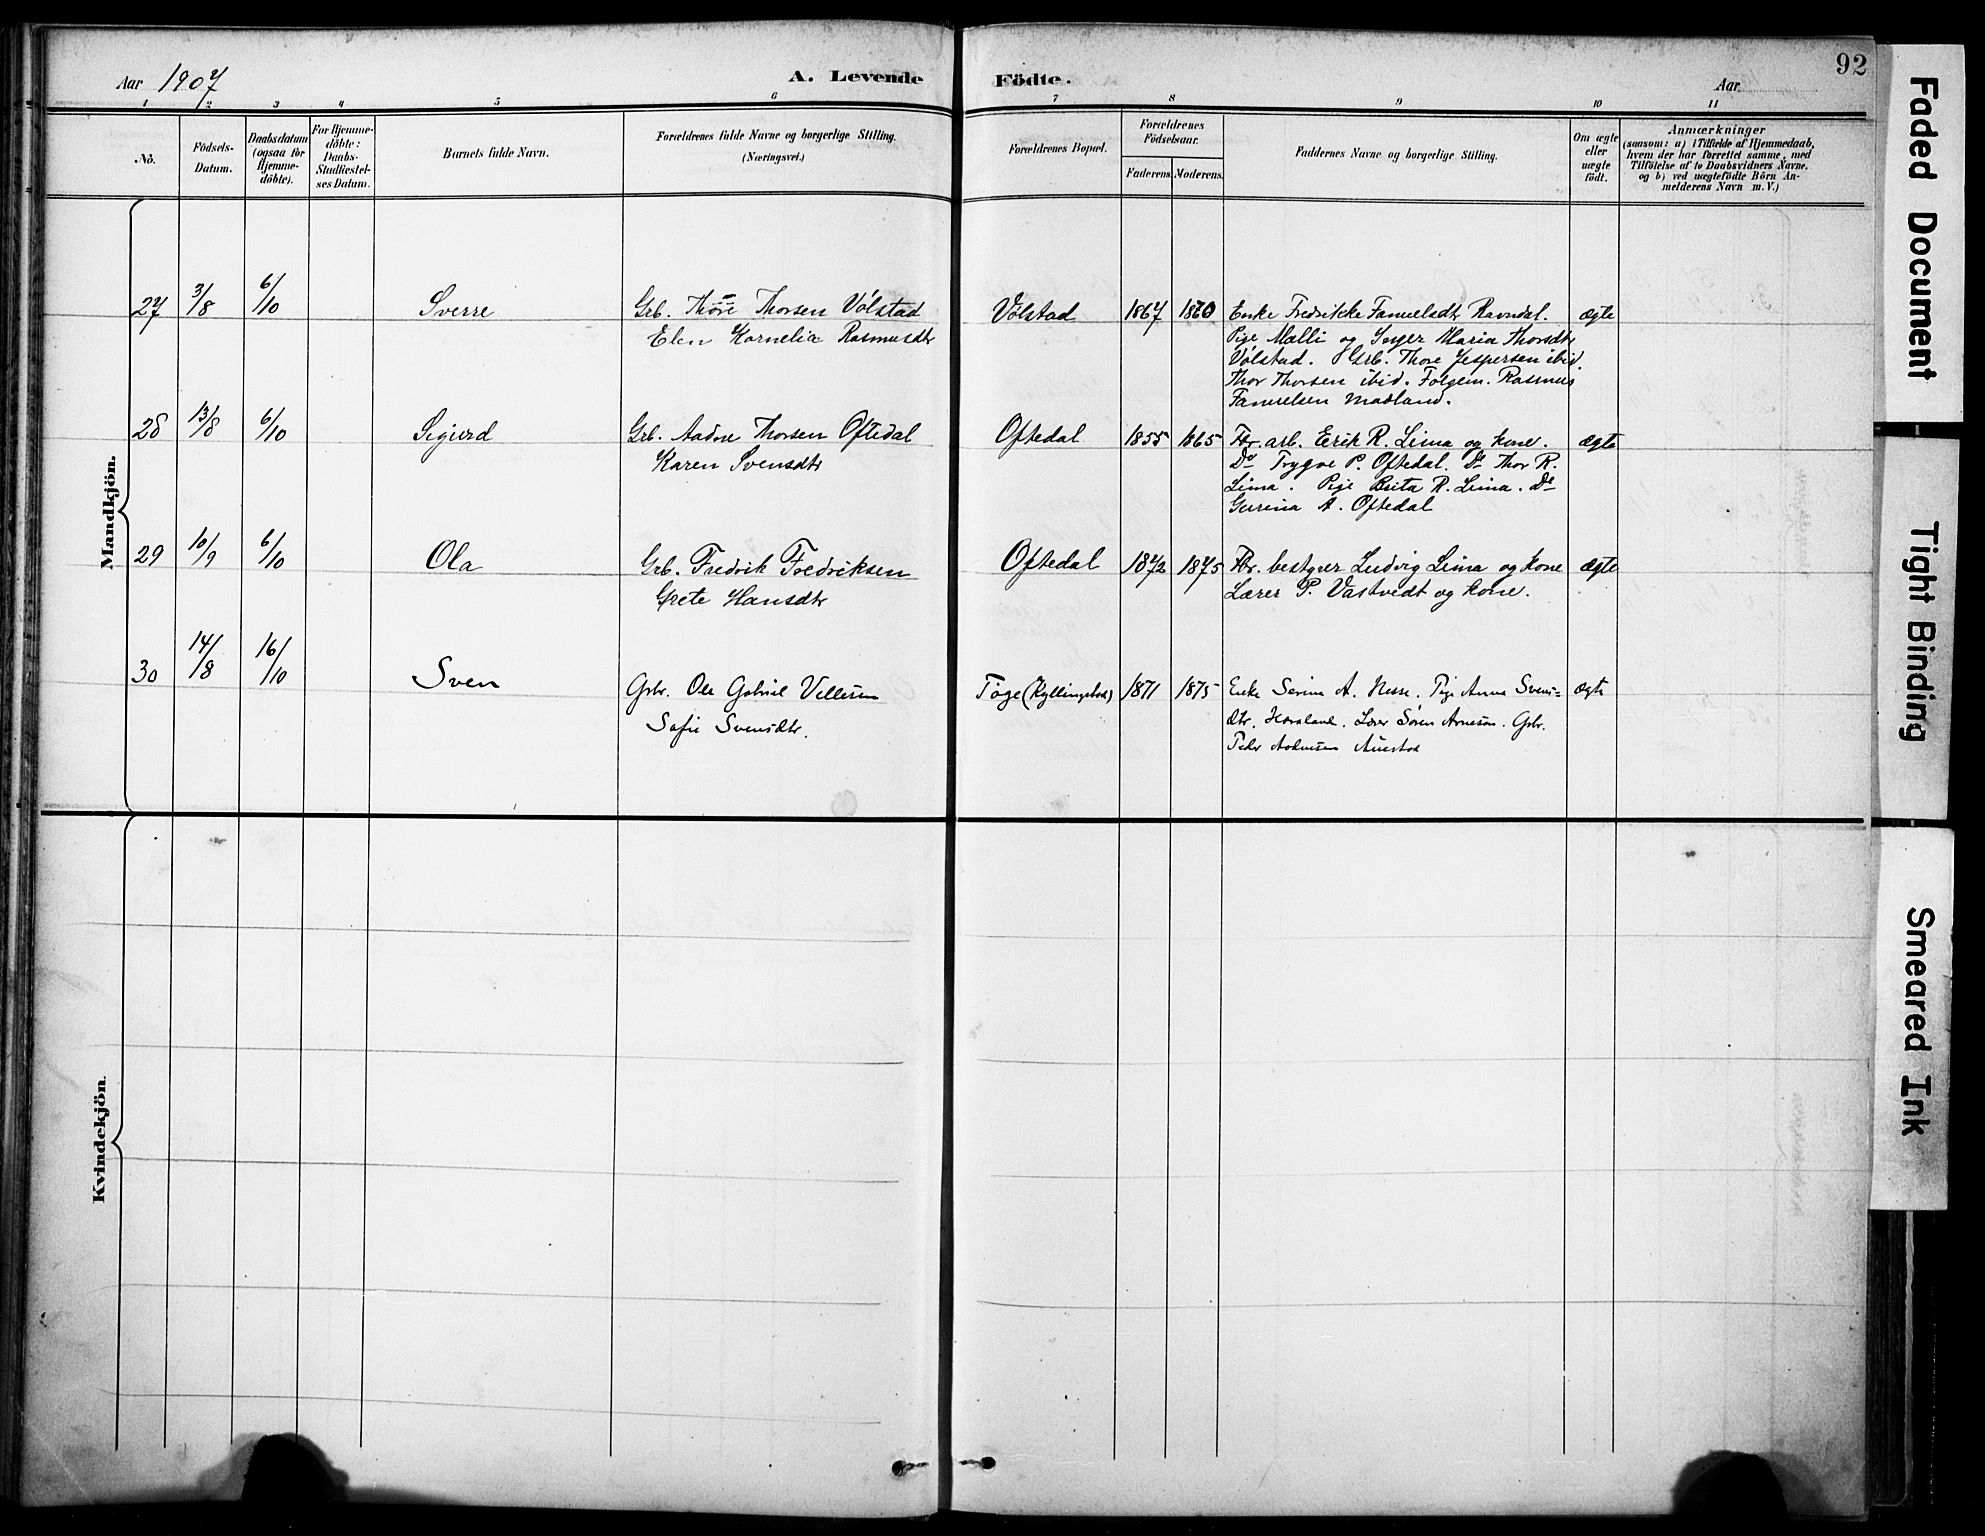 Aar 1907
A. Levende Födte.
Aar
92
1 2 3 4 5 6 7 8 9 10 11
No.
Födsels-
Datum.
Daabsdatum
(ogsaa for
Hjemme-
döbte).
For Hjemme-
döbte:
Daabs-
Stadfæstel-
ses Datum.
Barnets fulde Navn.
Forældrenes fulde Navne og borgerlige Stilling.
(Næringsvei.)
Forældrenes Bopæl.
Forældrenes
Födselsaar.
Faderens. Moderens.
Faddernes Navne og borgerlige Stilling.
Om ægte
eller
uægte
födt.
Anmærkninger
(saasom: a) i Tilfælde af Hjemmedaab,
hvem der har forrettet samme, med
Tilföielse af to Daabsvidners Navne,
og b) ved uægtefödte Börn An-
melderens Navn m. V.)
Mandkjön.
27 3/8 6/10 Sverre Grb. Thore Thorsen Vølstad Vølstad 1867 1870 Enke Fredrikke Fanuelsdtr Ravndal. ægte
Elen Kornelia Rasmusdtr Pige Malli og Inger Maria Thorsdtr
Vølstad. Grb. Thore Jespersen ibid.
Thor Thorsen ibid. Følgem. Rasmus
Fanuelsen Madland.
28 13/8 6/10 Sigurd Grb. Aadne Thorsen Oftedal Oftedal 1855 1865 Fbr. arb. Eerik R. Lima og kone. ægte
Karen Svensdtr Do Trygve P. Oftedal. Do Thor R.
Lima. Pige Berta R. Lima. Do
Gurina A. Oftedal
29 10/9 6/10 Ola Grb. Fredrik Fredriksen Oftedal 1872 1875 Fbr. bestyrer Ludvig Lima og kone ægte
Grete Hansdtr Lærer P. Vastvedt og kone.
30 14/8 16/10 Sven Gbr. Ole Gabriel Villumsen Töge (Kyllingstad) 1871 1875 Enke Serina A. Nesse. Pige Anna Svens= ægte
Sofie Svensdtr. dtr. Haaland. Lærer Sören Arnesen. Gbr.
Peder Aadnesen Auestad
Kvindekjön.
Faded Document
Tight Binding
Smeared Ink